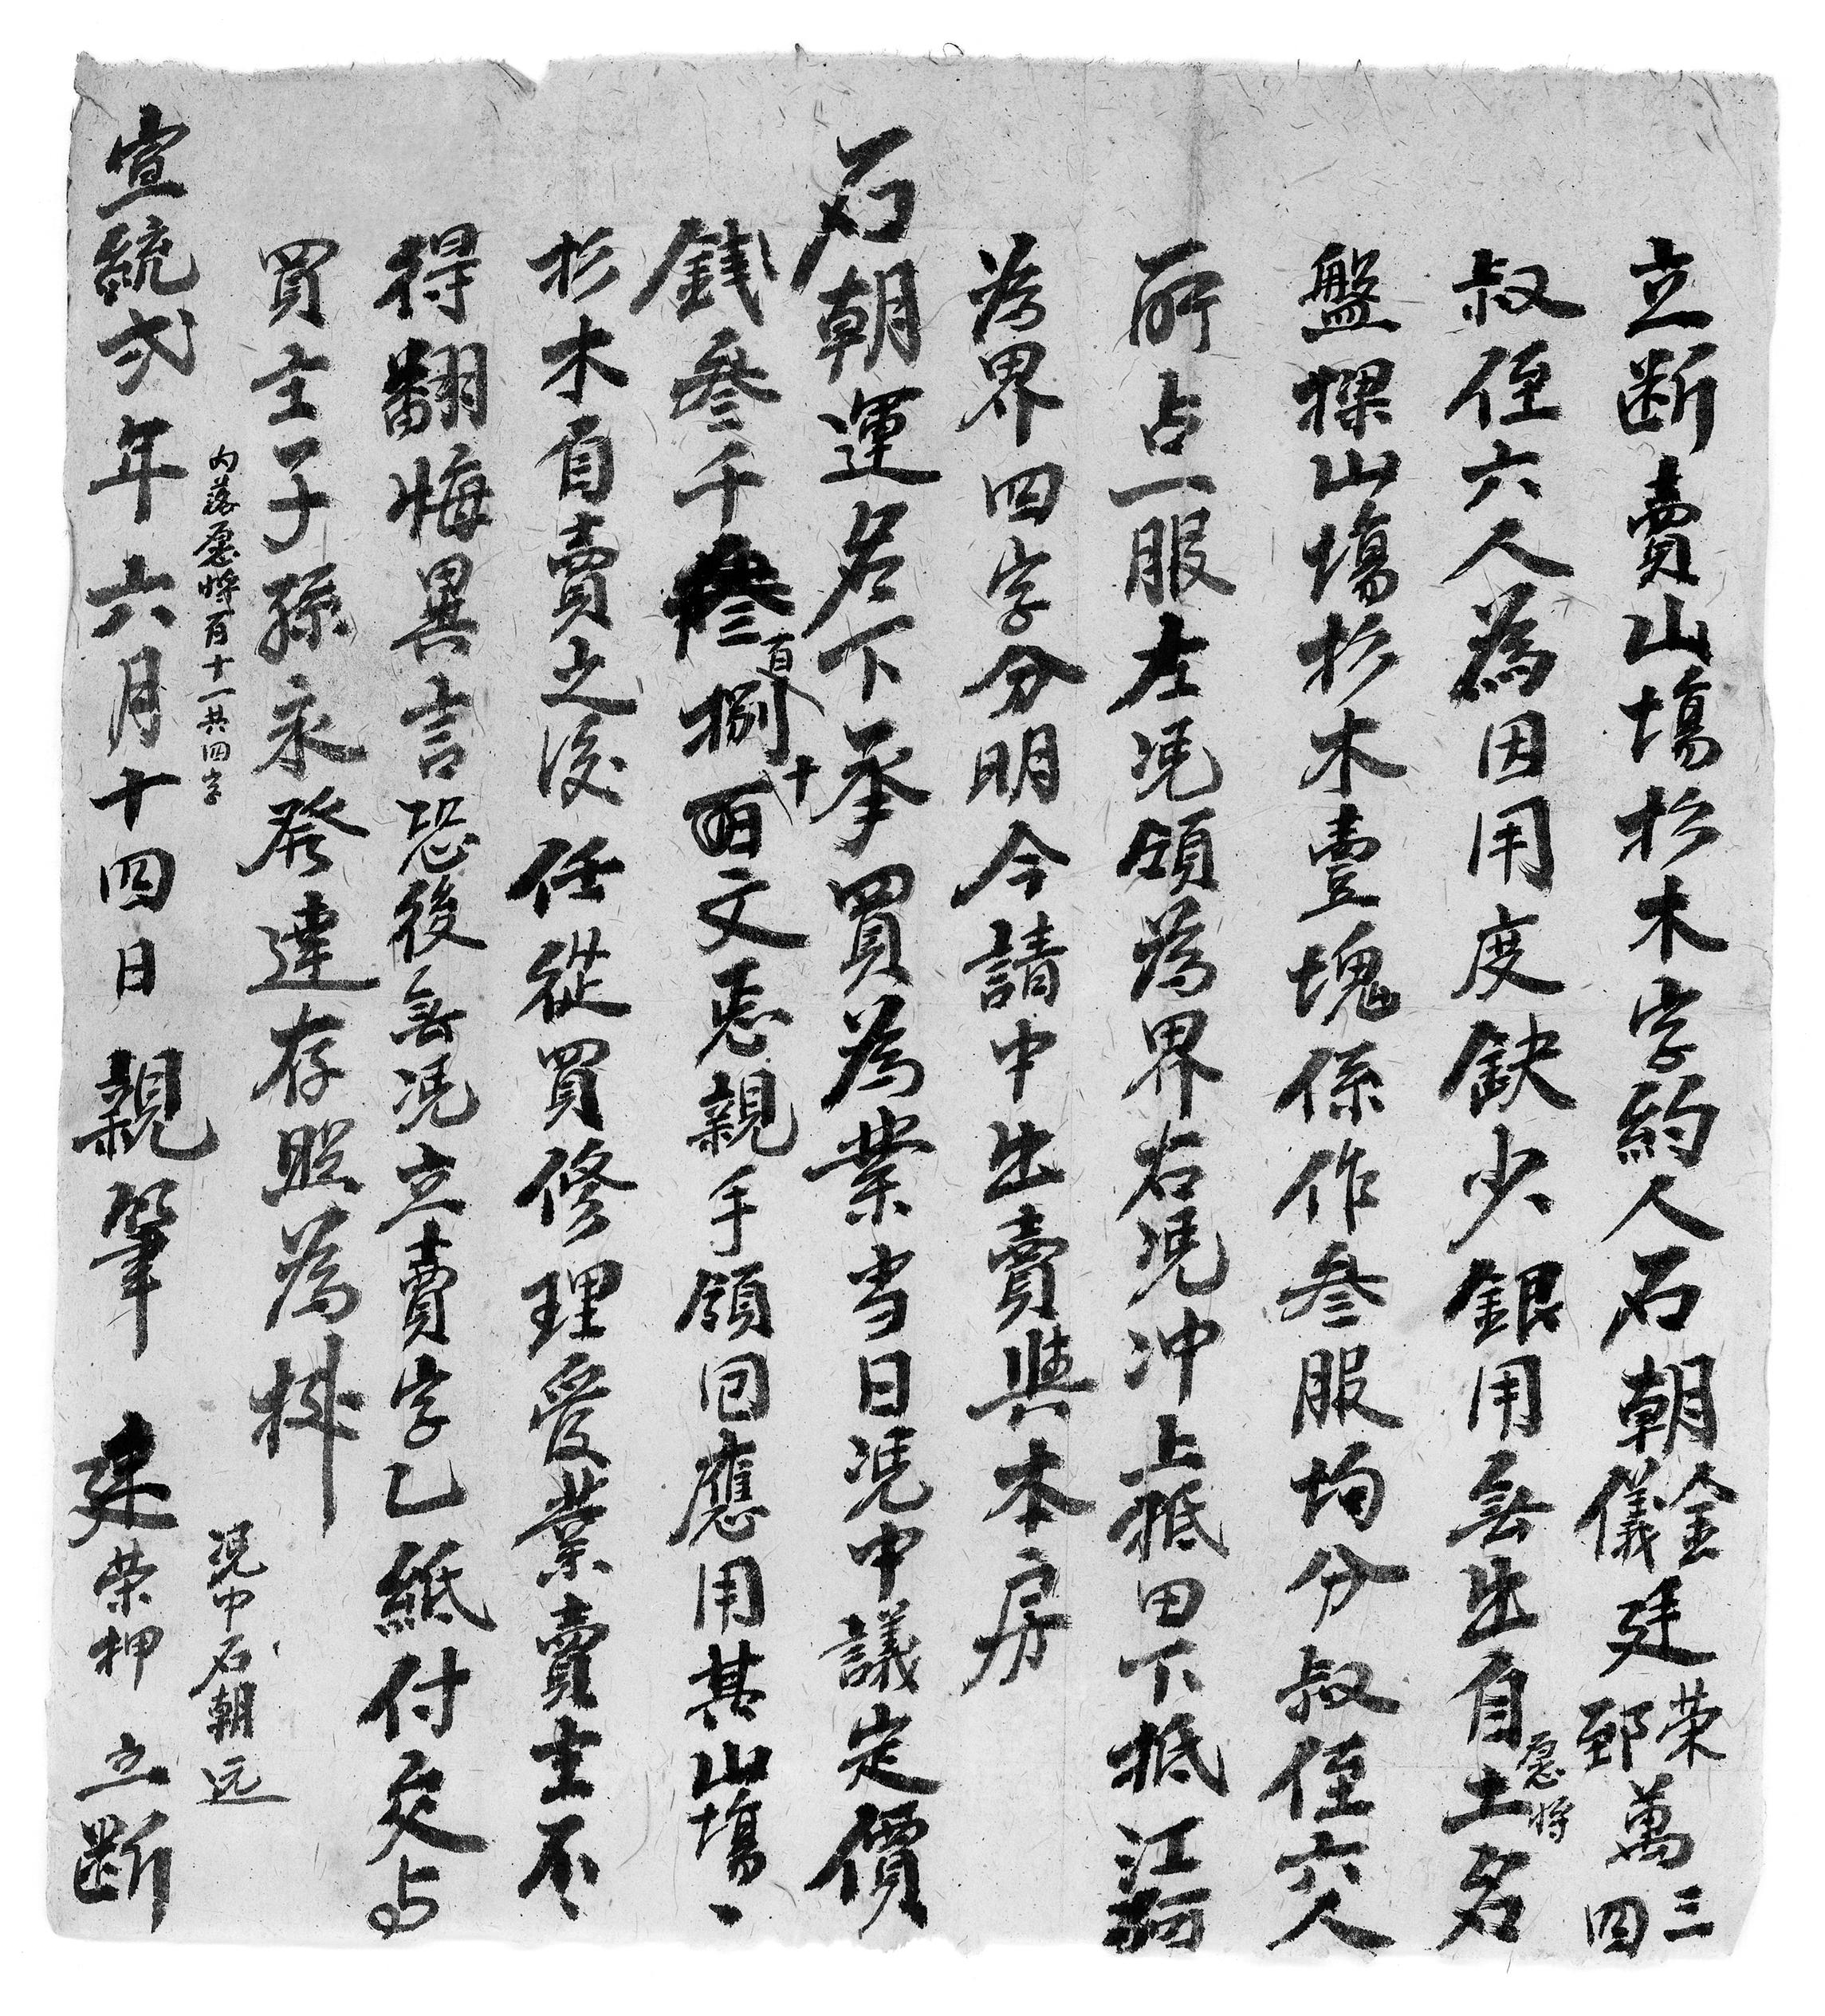 立断賣山塲杉木字約人石朝金儀廷荣郅萬三四
叔侄六人為因用度缺少銀用無出自愿將土名
盤樑山塲杉木壹塊係作叁服均分叔侄六人
所占一服左凴領為界右凴冲上抵田下抵江河
為界四字分明今請中出賣與本房
石朝運名下承買為業当日凴中議定價
銭叁千叁百捌十百文悉親手領囬應用其山塲
杉木自賣之後任從買修理受業賣主不
得翻悔異言恐後無凴立賣字乙紙付交与
買主子孫永發達存照為㨿
内落愿將百十一共四字
凴中石朝远
宣統弍年六月十四日親筆廷荣押立断